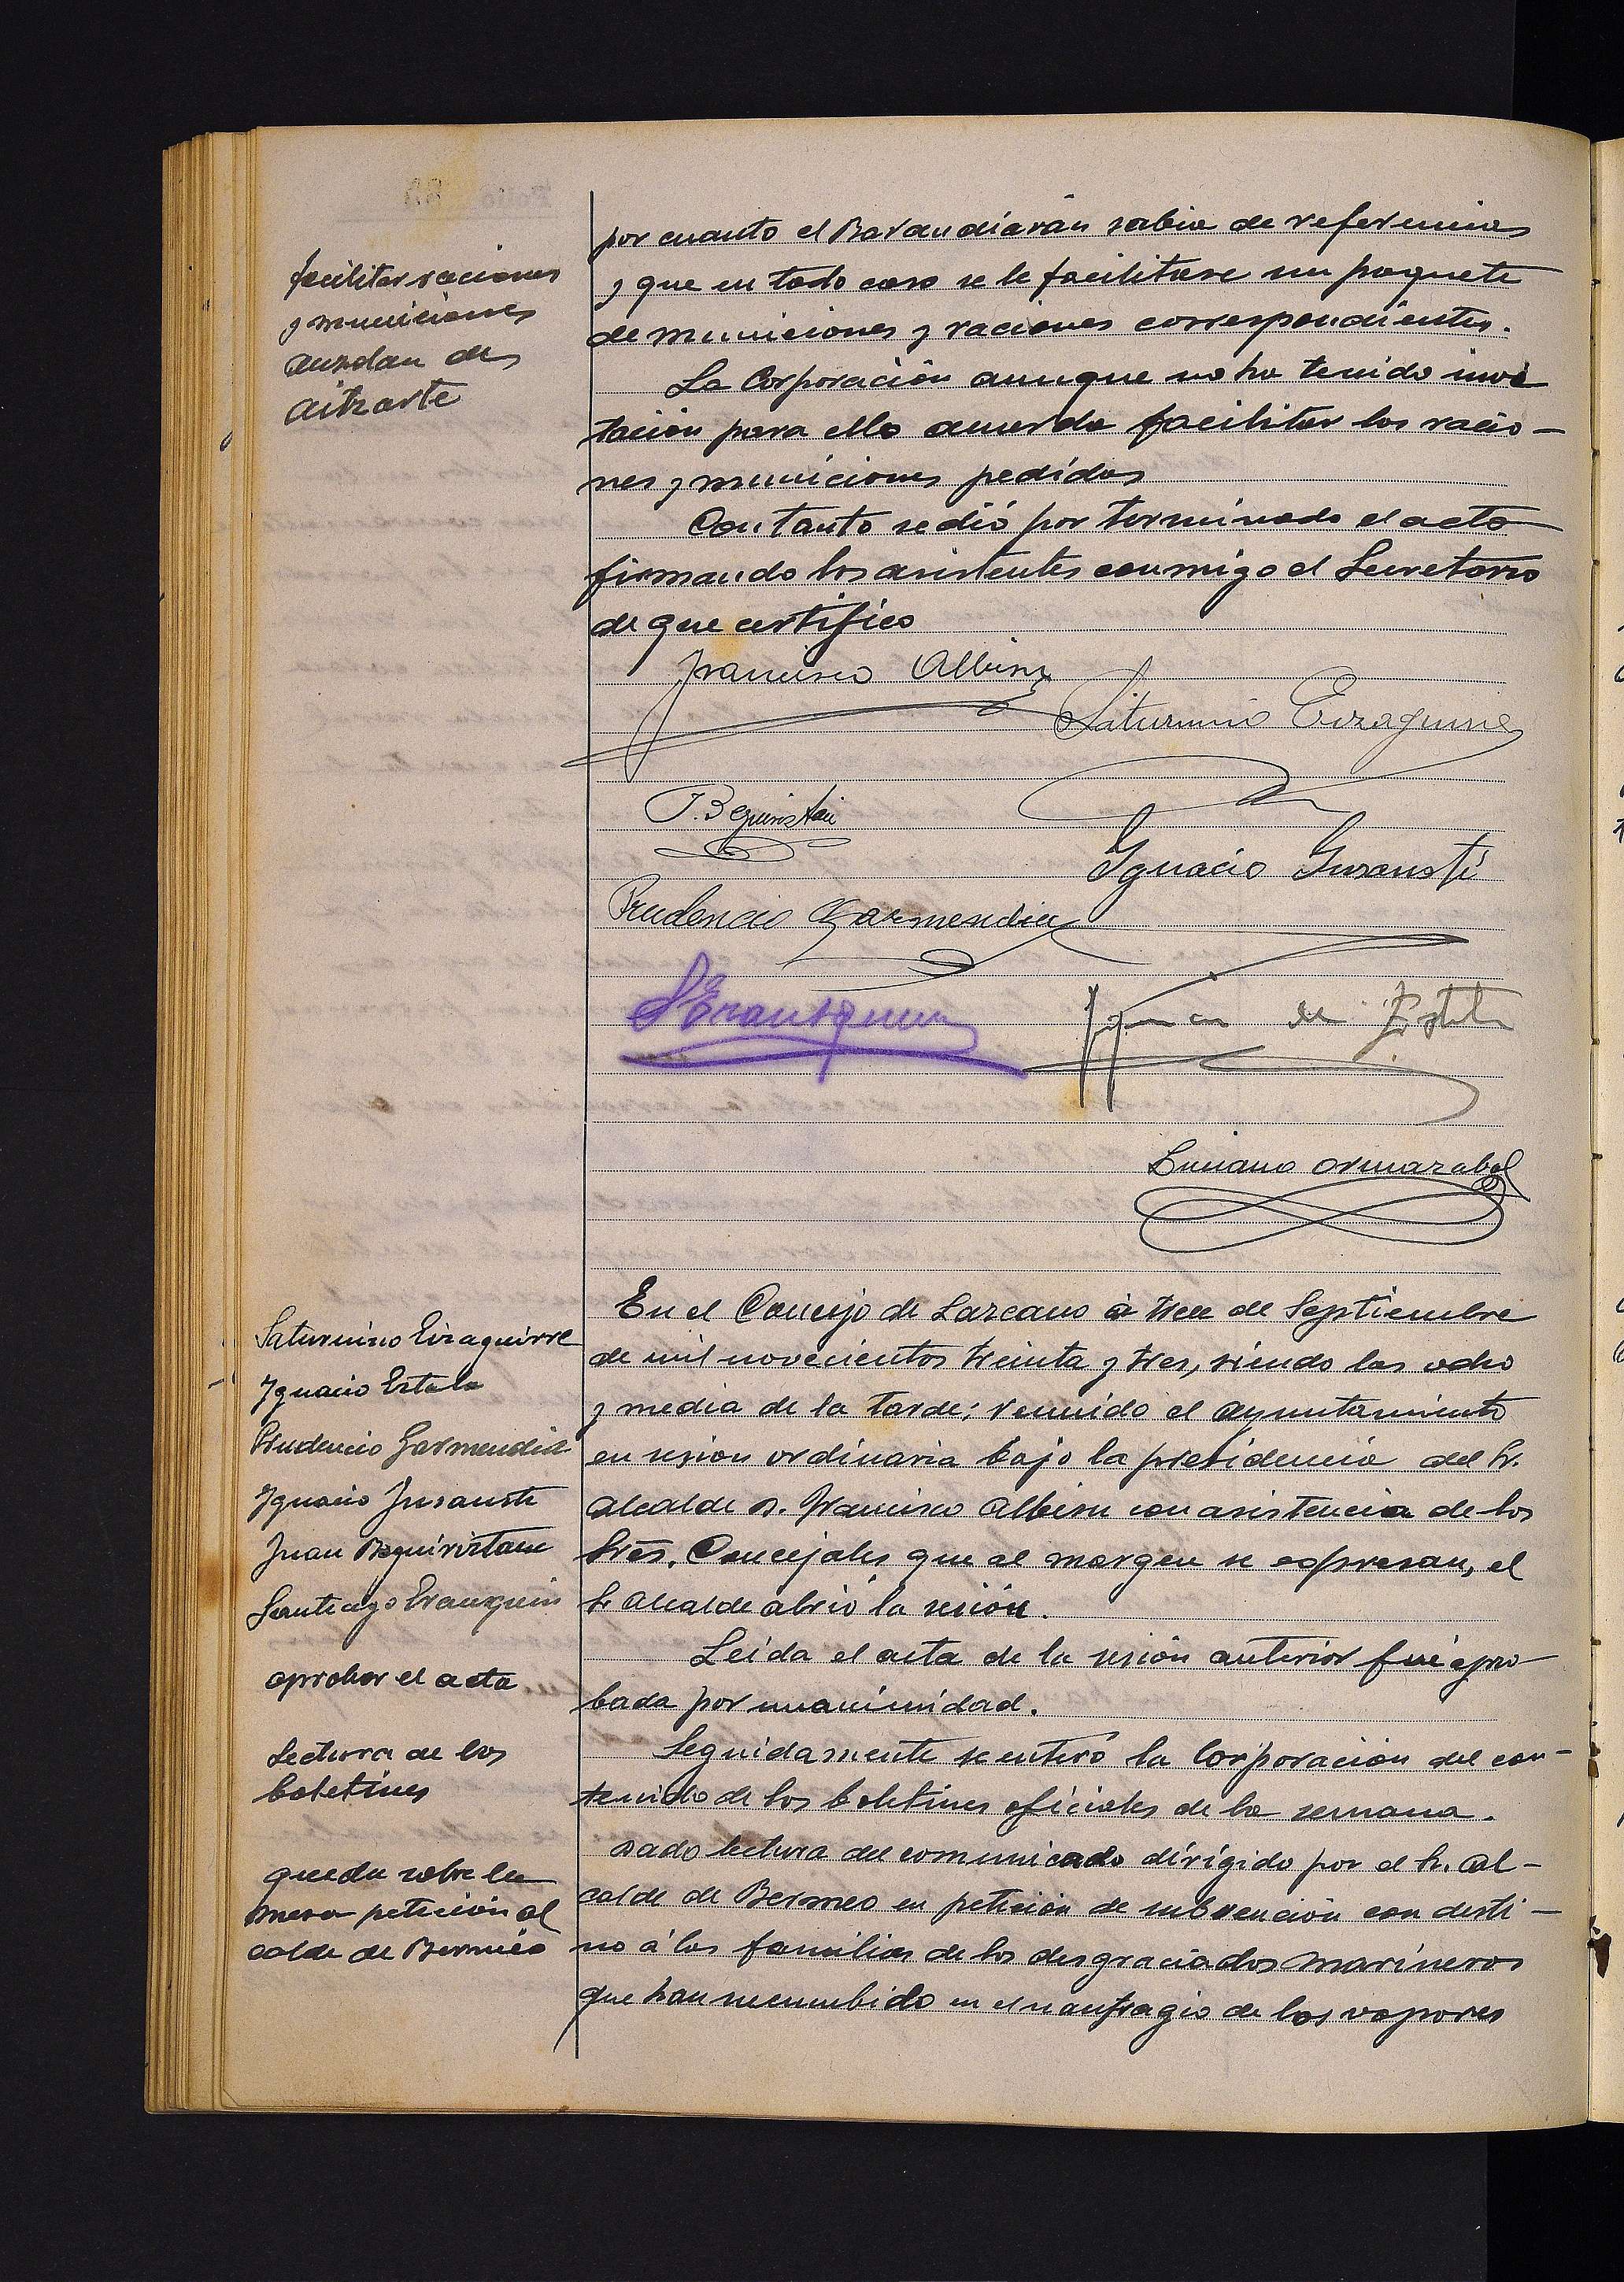 facilitar raciones
y municiones
auzolan de
aitzarte
por cuanto el Barandiarán sabia de referencias
y que en todo caso se le facilitase un paquete
de municiones y raciones correspondientes.
La Corporación aunque no ha tenido invi
tación para ello acuerda facilitar las racio-
nes y municiones pedidas
Con tanto se dió por terminado el acto
firmando los asistentes conmigo el Secretario
de que certifico
Francisco Albisu
Saturnino Eizaguirre
J. Beguiristain
Ignacio Insausti
Prudencio Garmendia
S Erausquin
Ignacio de Estala
Luciano Ormazabal
Saturnino Eizaguirre
Ignacio Estala
Prudencio Garmendia
Ignacio Insausti
Juan Beguiristain
Santiago Erauzquin
En el Concejo de Lazcano á trece de Septiembre
de mil novecientos treinta y tres, siendo las ocho
y media de la tarde; reunido el ayuntamiento
en sesion ordinaria bajo la presidencia del Sr.
alcalde D. Francisco Albisu con asistencia de los
Sres. Concejales que al margen se expresan, el
Sr alcalde abrió la sesión.
aprobar el acta
Leida el acta de la sesión anterior fué apro
bada por unanimidad.
Lectura de los
boletines
Seguidamente se enteró la Corporación del con-
tenido de los boletines oficiales de la semana.
queda sobre la
mesa petición al
calde de Bermeo
Dado lectura del comunicado dirigido por el Sr. Al-
calde de Bermeo en petición de subvención con desti-
no á las familias de los desgraciados marineros
que han sucumbido en el naufragio de los vapores